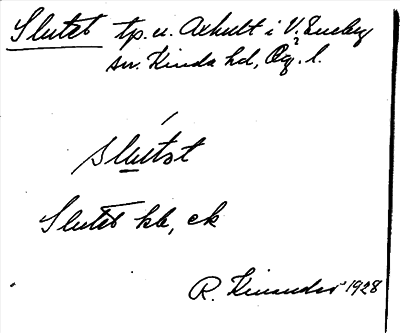 Slutet tp. u. Axhult i V. Eneby
sn. Kinda hd, Ög. l.
slutət
Slutet kb, ek
R. Kinander 1928